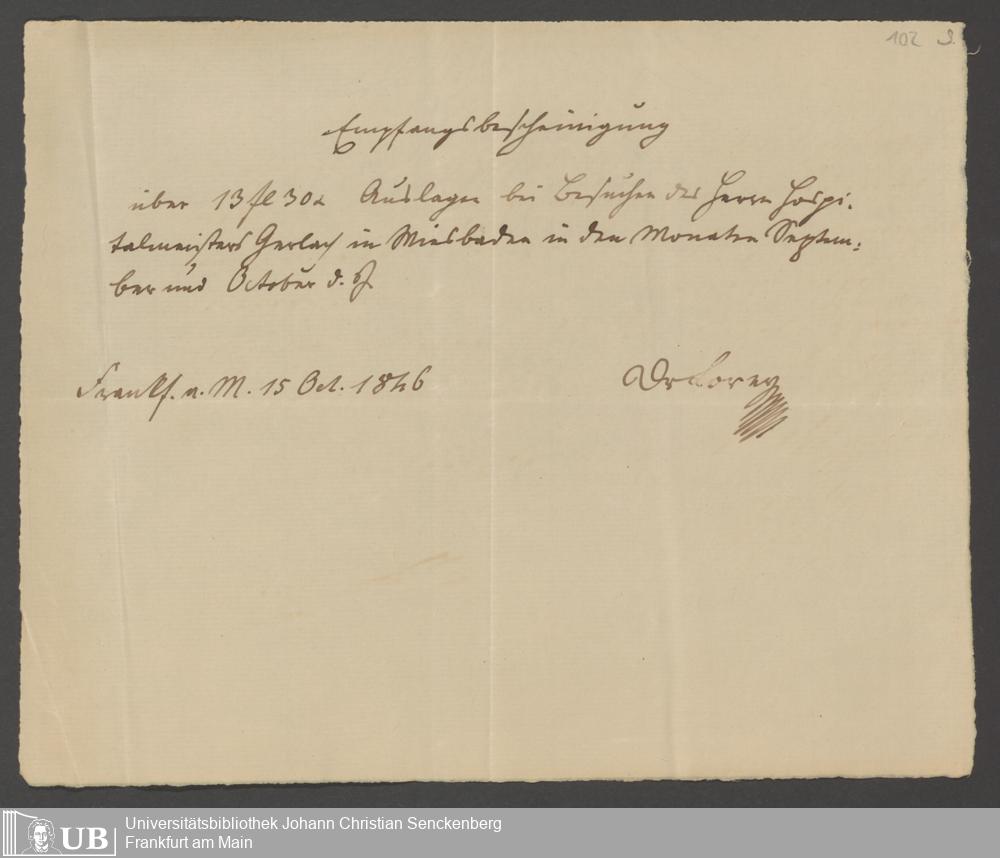 102
Empfangsbescheinigung
über 13 fl 30 x Auslagen bei Besuchen des Herrn Hospi-
talmeisters Gerlach in Wiesbaden in den Monaten Septem-
ber und October d. J.
Frankf. a. M. 15 Oct. 1846
Dr Lorey
UB
Universitätsbibliothek Johann Christian Senckenberg
Frankfurt am Main